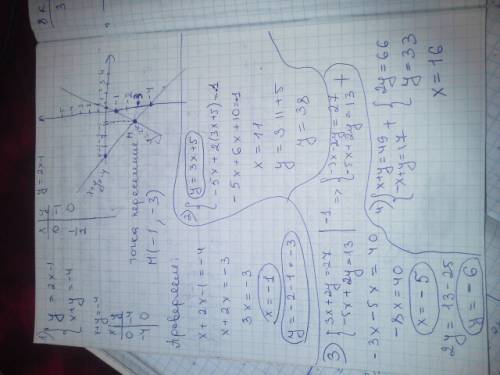 1) { y = 2x-1
x+y = -4
y = 2x-1
x | y
0 | -1
1/2 | 0
x+y=-4
x | y
0 | -4
-4 | 0
точка пересечение
M(-1, -3)
Проверяем:
x + 2x-1 = -4
x + 2x = -3
3x = -3
x = -1
y = -2-1 = -3
2) { y = 3x+5
-5x + 2(3x+5) = -1
-5x + 6x + 10 = -1
x = 11
y = 3·11+5
y = 38
3) { 3x-2y=27 | -1
-5x+2y=13
=> { -3x-2y=27
-5x+2y=13 +
-3x-5x = 40
-8x=40
x=-5
2y = 13-25
y = -6
4) { x+y=49
-x+y=17 +
{ 2y=66
y=33
x=16